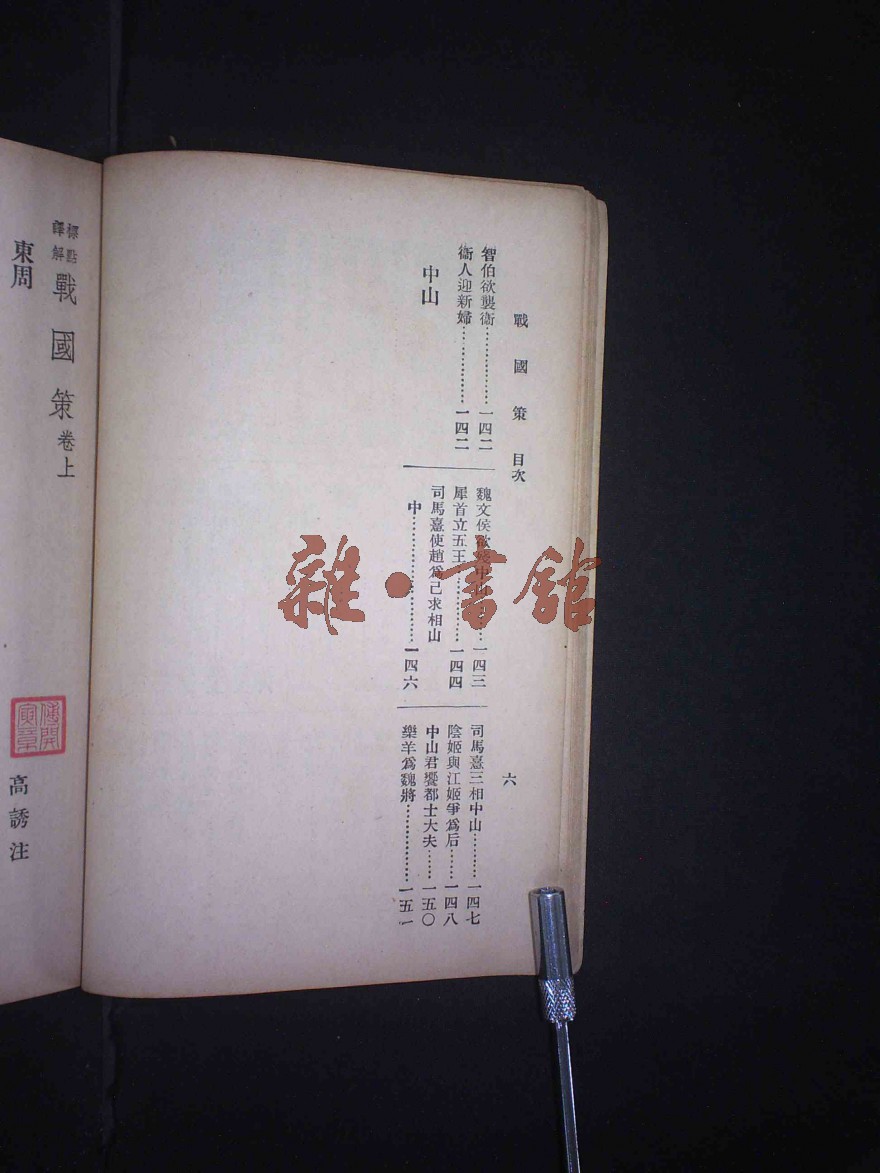 戰國策 目次
六
智伯欲襲衞………………一四二
衞人迎新婦………………一四二
中山
魏文侯欲殘中山………一四三
犀首立五王………………一四四
司馬憙使趙爲己求相山
中………………一四六
司馬憙三相中山………一四七
陰姬與江姬爭爲后……一四八
中山君饗都士大夫……一五〇
樂羊爲魏將………………一五一
標點
譯解
戰國策 卷上
東周
高誘注
雜·書館